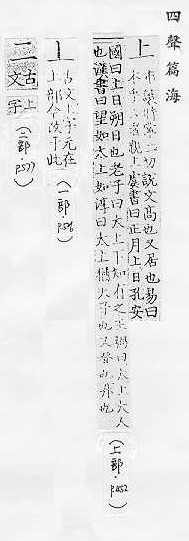 四聲篇海
上 市讓時掌二切說文高也又居也易曰
本乎天者親上虞書曰正月上日孔安
國曰上日朔日也老子曰太上下知有之王弼曰太上大人
也漢書曰望如太上如淳曰太上猶天子也又登也升也(上部·P.452)
丄 古文上字元在
上部今改于此(一部·P.56)
二 古文
上字(二部·P.577)